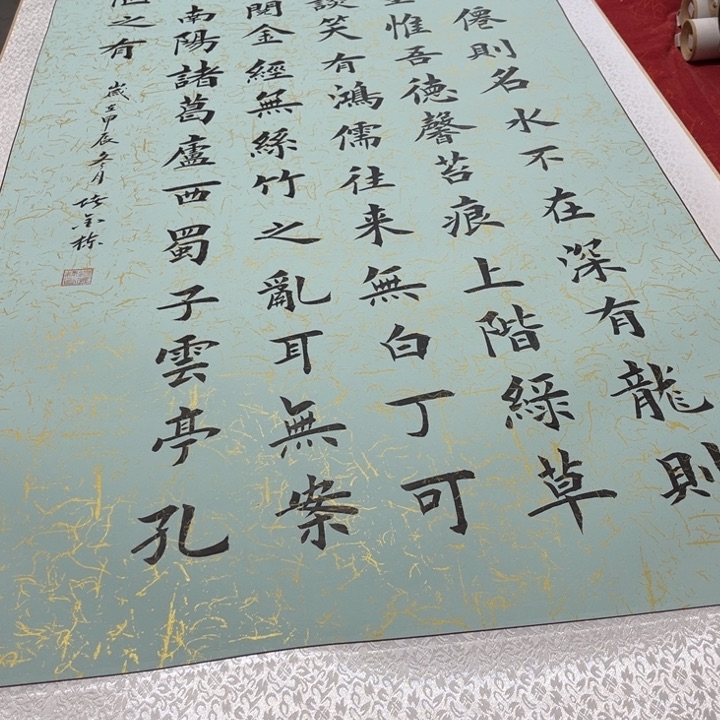 僊則名水不在深有龍則
惟吾德馨苔痕上階綠草
談笑有鴻儒往来無白丁可
閱金經無絲竹之亂耳無案
南陽諸葛廬西蜀子雲亭孔
之有
歲在甲辰冬月